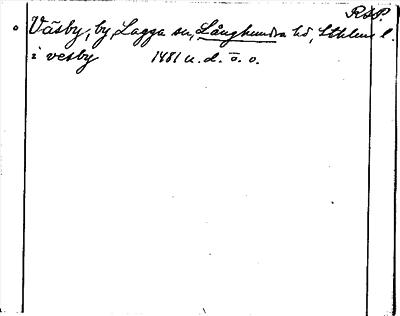 RAP.
Väsby, by, Lagga sn, Långhundra hd, Sthlms l.
i vesby 1481 u. d. ö. o.